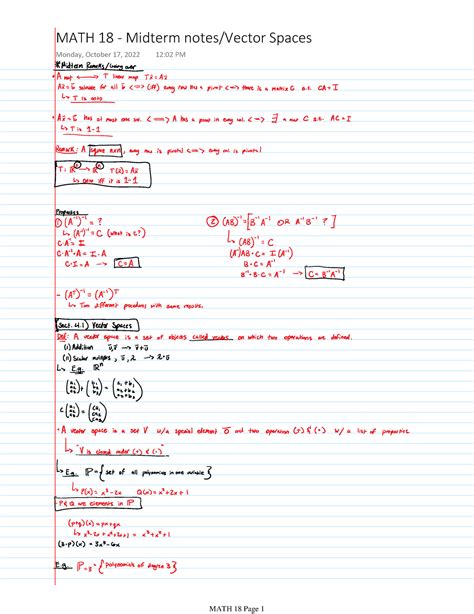 MATH 18 - Midterm notes/Vector Spaces
Monday, October 17, 2022 12:02 PM
* Midterm Remarks/Going over
• A m×n ⟷ T linear map Tx̄ = Ax̄
Ax̄ = b̄ solvable for all b̄ <=> every row has a pivot <=> there is a matrix C s.t. CA = I
↳ T is onto
• Ax̄ = b̄ has at most one sol. <=> A has a pivot in every col. <=> ∃ a C s.t. AC = I
↳ T is 1-1
Remark: A square n×n, every row is pivotal <=> every col is pivotal
T: ℝⁿ → ℝⁿ T(x̄) = Ax̄
↳ onto iff it is 1-1
Properties
① (A⁻¹)⁻¹ = ?
↳ (A⁻¹)⁻¹ = C (what is C?)
C·A⁻¹ = I
C·A⁻¹·A = I·A
C·I = A → C = A
② (AB)⁻¹ = [B⁻¹A⁻¹ OR A⁻¹B⁻¹?]
↳ (AB)⁻¹ = C
(A⁻¹)AB·C = I(A⁻¹)
B·C = A⁻¹
B⁻¹·B·C = A⁻¹ → C = B⁻¹A⁻¹
- (Aᵀ)⁻¹ = (A⁻¹)ᵀ
↳ Two different procedures with same results.
Sect. 4.1) Vector Spaces
Def: A vector space is a set of objects called vectors on which two operations are defined.
(i) Addition ū, v̄ → v̄+ū
(ii) Scalar multiples, ū, 2 → 2·ū
↳ E.g. ℝⁿ
(a₁ a₂ a₃) + (b₁ b₂ b₃) = (a₁+b₁ a₂+b₂ a₃+b₃)
C(a₁ a₂ a₃) = (ca₁ ca₂ ca₃)
• A vector space is a set V w/a special element 0̄ and two operations (+) & (•) w/ a list of properties
↳ "V is closed under (+) & (•)"
↳ E.g. ℙ = { set of all polynomials in one variable }
↳ P(x) = x³-2x Q(x) = x²+2x+1
P & Q are elements in ℙ
(p+q)(x) = px+qx
x³-2x+x²+2x+1 = x³+x²+1
(3·P)(x) = 3x³-6x
E.g. ℙ₌₃ = { polynomials of degree 3 }
MATH 18 Page 1